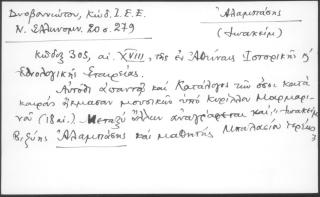 Δυοβουνιώτου, Κώδ. Ι.Ε.Ε.
Ν. Ἑλληνομν. 20 σ. 279
Ἀλαμπάσης
(Ἰωακείμ)
Κώδιξ 305, αἰ. XVIII, τῆς ἐν Ἀθήναις Ἱστορικῆς κ'
Ἐθνολογικῆς Ἑταιρείας.
Αὐτόθι ἀπαντᾷ καὶ Κατάλογος τῶν ὅσοι κατὰ
καιροὺς ἤκμασαν μουσικῶν ὑπὸ Κυρίλλου Μαρμαρι-
νοῦ (18 αἰ.). Μεταξὺ ἄλλων ἀναγράφεται καὶ: "Ἰωακεὶμ
Βιζύης Ἀλαμπάσης καὶ μαθητὴς Μπαλασίου ἱερέως